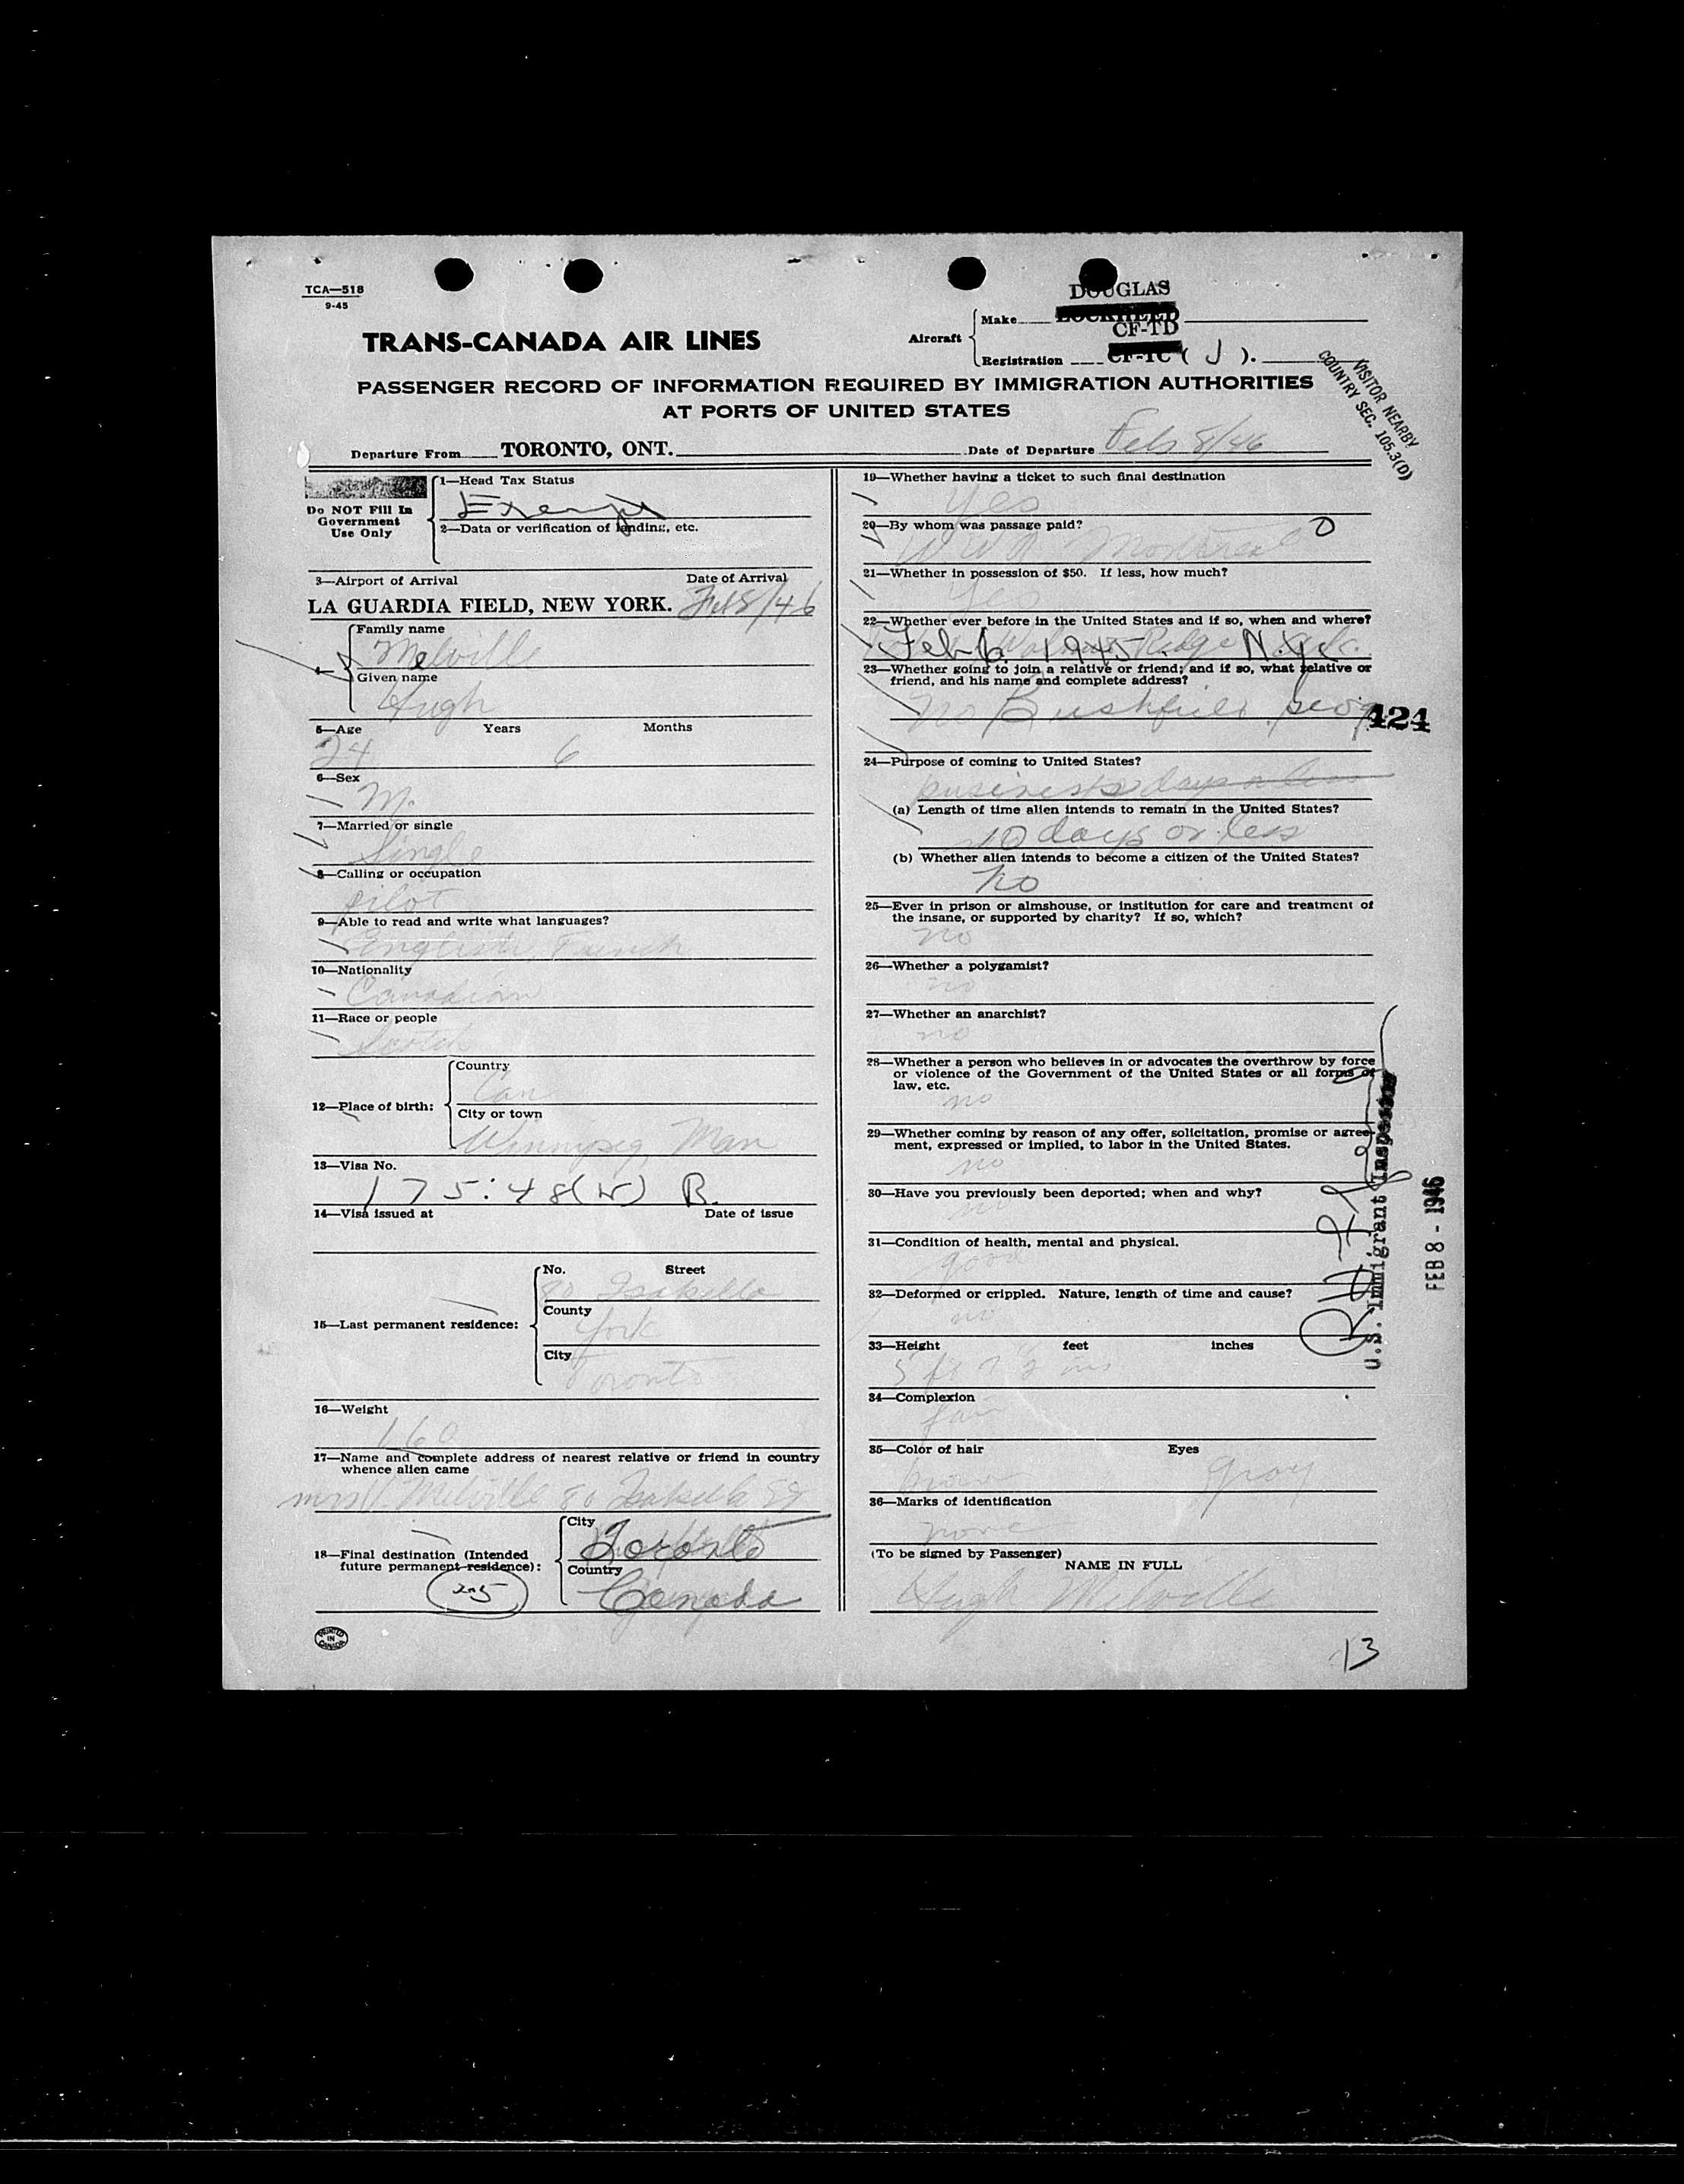 TCA—518
9-45
DOUGLAS
Aircraft
Make
LOCKHEED
CF-TD
Registration CF-TC ( J ).
TRANS-CANADA AIR LINES
PASSENGER RECORD OF INFORMATION REQUIRED BY IMMIGRATION AUTHORITIES
AT PORTS OF UNITED STATES
VISITOR NEARBY
COUNTRY SEC. 105.3(D)
Departure From TORONTO, ONT. Date of Departure Feb 8/46
Do NOT Fill In
Government
Use Only
1—Head Tax Status
Exempt
2—Data or verification of landing, etc.
3—Airport of Arrival Date of Arrival
LA GUARDIA FIELD, NEW YORK. Feb 8/46
Family name
Melville
Given name
Hugh
5—Age Years Months
24 6
6—Sex
M.
7—Married or single
Single
8—Calling or occupation
pilot
9—Able to read and write what languages?
English French
10—Nationality
Canadian
11—Race or people
Scotch
12—Place of birth:
Country
Can
City or town
Winnipeg, Man
13—Visa No.
175:48 B.
14—Visa issued at Date of issue
15—Last permanent residence:
No. Street
80 Isabella
County
York
City
Toronto
16—Weight
160
17—Name and complete address of nearest relative or friend in country
whence alien came
Mrs Melville 80 Isabella St
18—Final destination (Intended
future permanent residence):
City
Toronto
Country
Canada
PRINTED
IN
CANADA
19—Whether having a ticket to such final destination
Yes
20—By whom was passage paid?
Montreal
21—Whether in possession of $50. If less, how much?
Yes
22—Whether ever before in the United States and if so, when and where?
Feb 6 1945 N.Y.
23—Whether going to join a relative or friend; and if so, what relative or
friend, and his name and complete address?
no
424
24—Purpose of coming to United States?
business
(a) Length of time alien intends to remain in the United States?
10 days or less
(b) Whether alien intends to become a citizen of the United States?
no
25—Ever in prison or almshouse, or institution for care and treatment of
the insane, or supported by charity? If so, which?
no
26—Whether a polygamist?
no
27—Whether an anarchist?
no
28—Whether a person who believes in or advocates the overthrow by force
or violence of the Government of the United States or all forms of
law, etc.
no
29—Whether coming by reason of any offer, solicitation, promise or agree-
ment, expressed or implied, to labor in the United States.
no
30—Have you previously been deported; when and why?
no
31—Condition of health, mental and physical.
good
32—Deformed or crippled. Nature, length of time and cause?
no
33—Height feet inches
5 ft
34—Complexion
fair
35—Color of hair Eyes
brown gray
36—Marks of identification
none
(To be signed by Passenger)
NAME IN FULL
Hugh Melville
U.S. Immigrant Inspector
FEB 8 - 1946
13